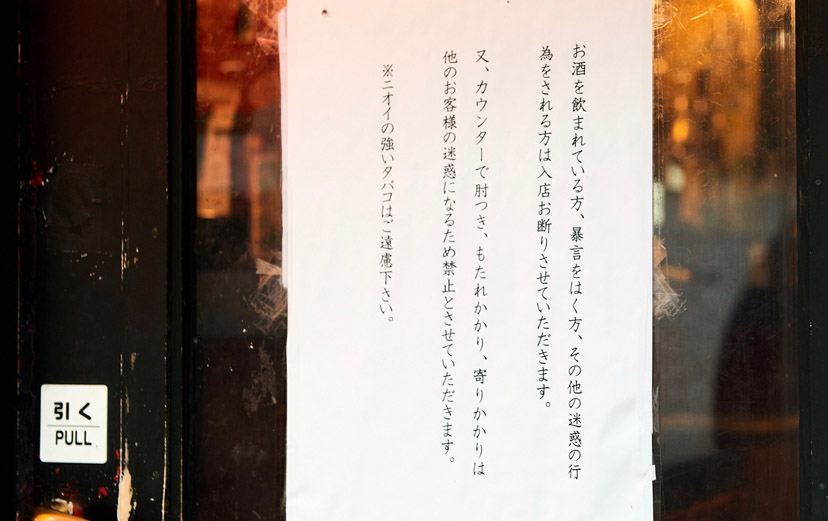 お酒を飲まれている方、暴言をはく方、その他の迷惑の行
為をされる方は入店お断りさせていただきます。
又、カウンターで肘つき、もたれかかり、寄りかかりは
他のお客様の迷惑になるため禁止とさせていただきます。
※ニオイの強いタバコはご遠慮下さい。
引く
PULL